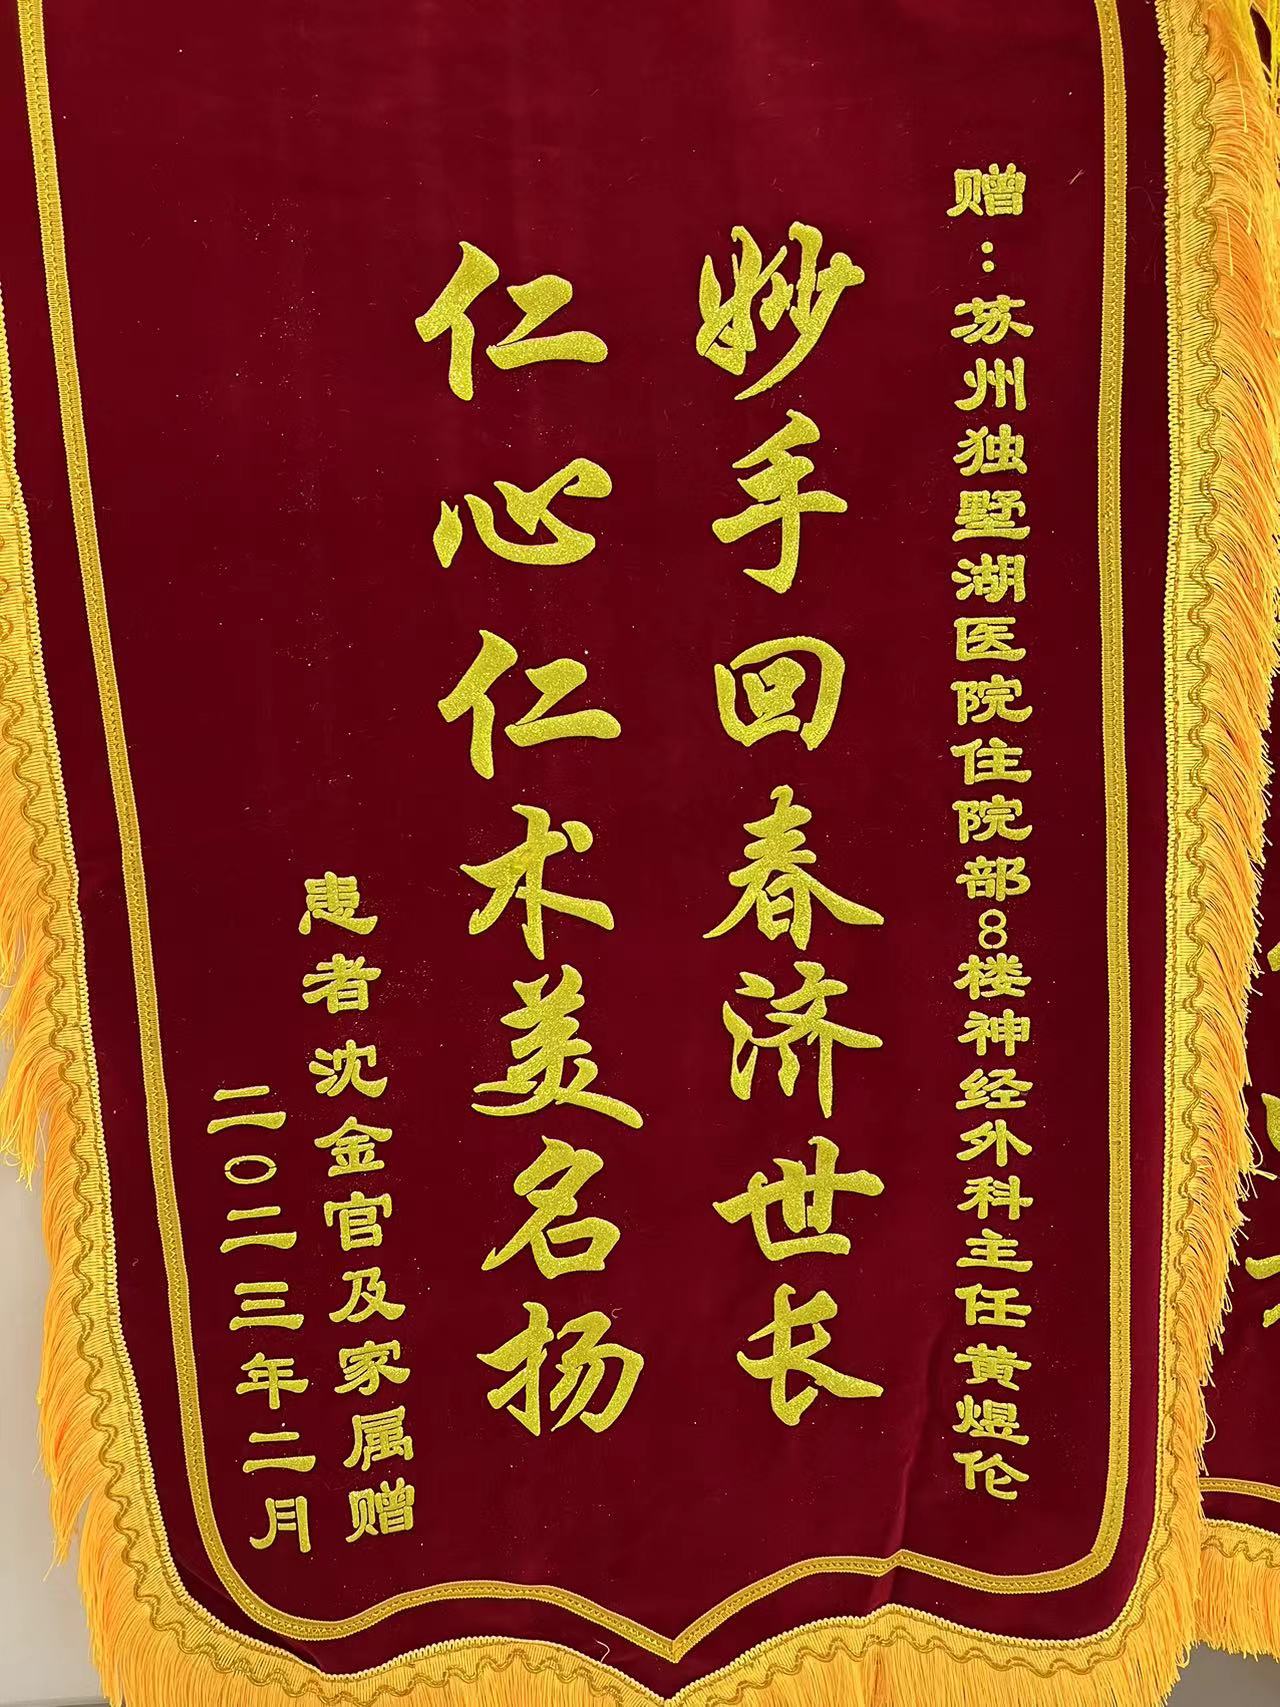 赠：苏州独墅湖医院住院部8楼神经外科主任黄煜伦
妙手回春济世长
仁心仁术美名扬
患者沈金官及家属赠
二〇二三年二月